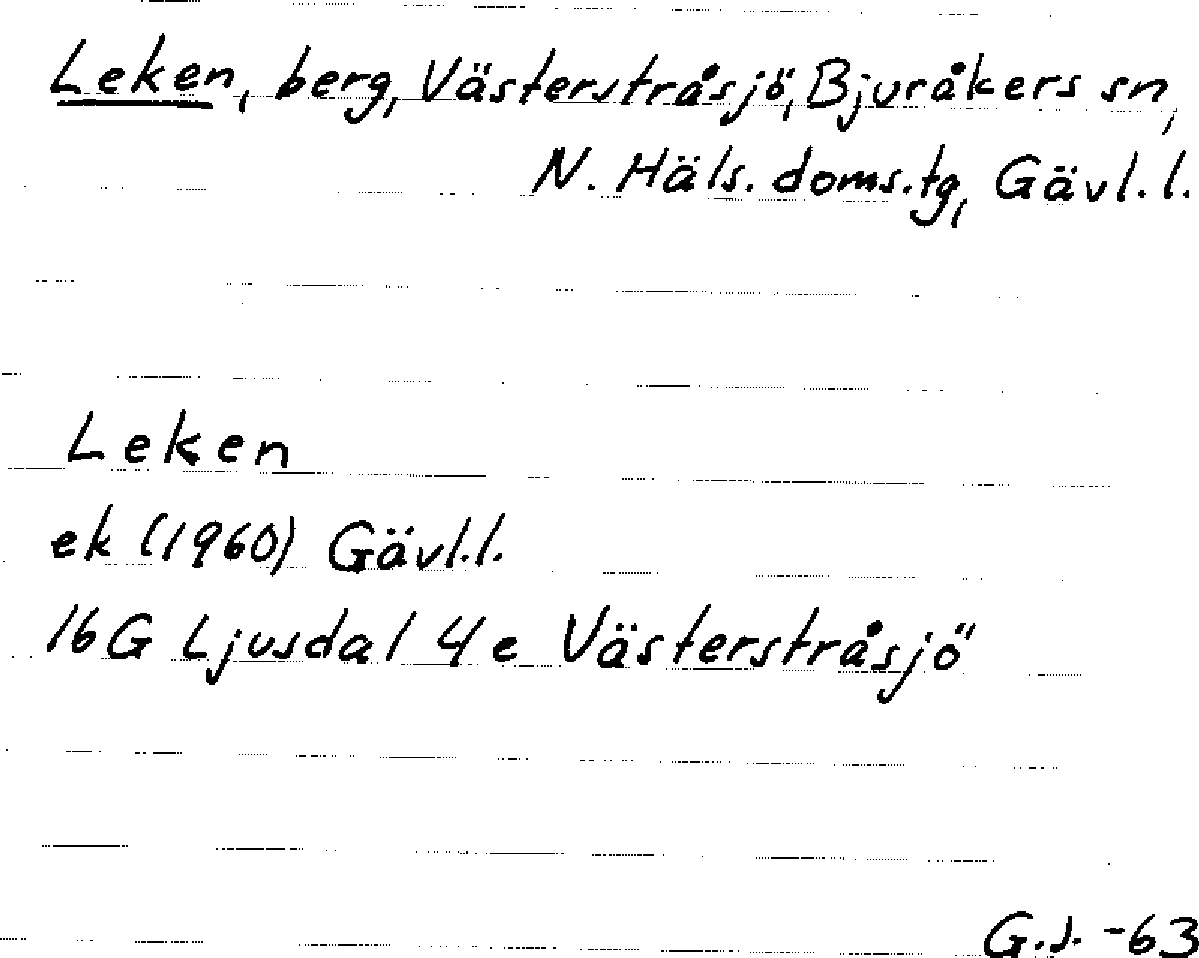 Leken, berg, Västerstråsjö, Bjuråkers sn,
N. Häls. doms.tg, Gävl.l.
Leken
ek (1960) Gävl.l.
16G Ljusdal 4e Västerstråsjö
G.J. -63